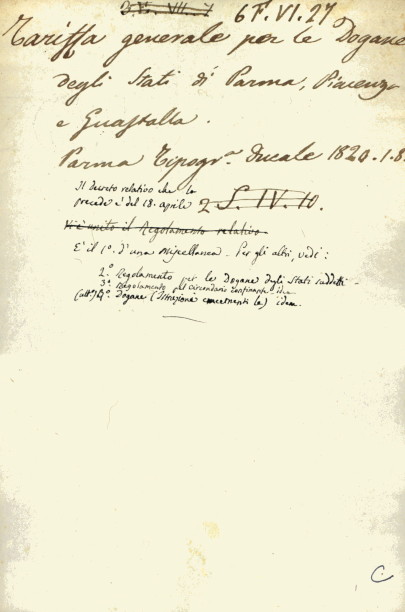 6 F. VI. 27
Tariffa generale per le Dogane
degli Stati di Parma, Piacenza
e Guastalla.
Parma Tipogr.ª Ducale 1820. 1. 8.
Il Decreto relativo che lo
precede è del 18. aprile 2 S. IV. 10.
Vi è unito il Regolamento relativo
È il 1º. d'una Miscellanea. Per gli altri, vedi:
2.º Regolamento per le Dogane degli Stati suddetti
3.º Regolamento pel circondario confinante idem
4.º Dogane (Istruzioni concernenti le) idem.
C.